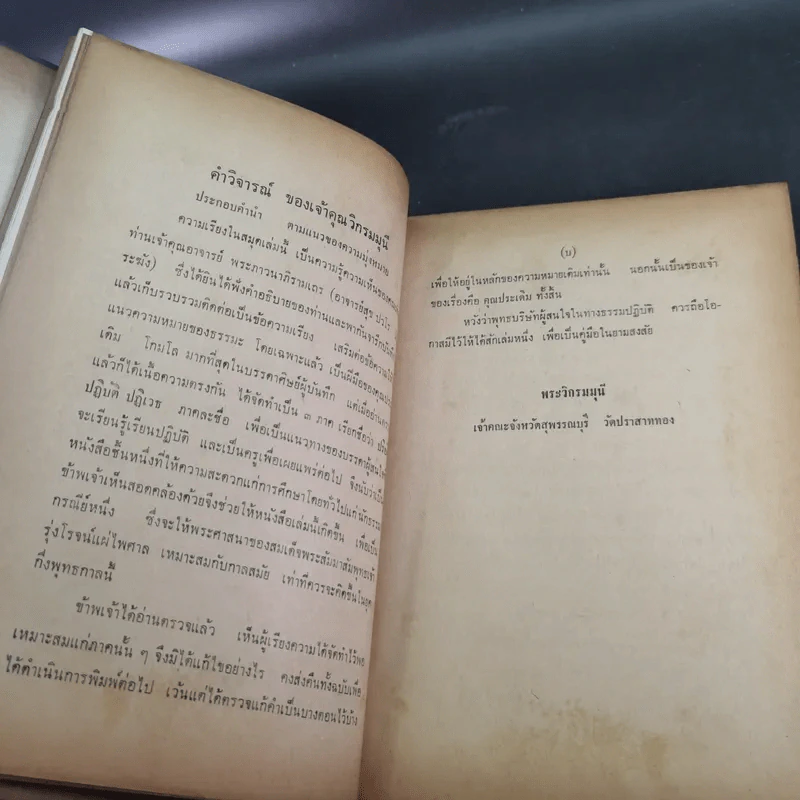 คำวิจารณ์ ของเจ้าคุณวิกรมมุนี
ประกอบคำนำ ตามแนวของความมุ่งหมาย
ความเรียงในสมุดเล่มนี้ เป็นความรู้ความเห็นของ
ท่านเจ้าคุณอาจารย์ พระภาวนาภิรามเถร (อาจารย์สุข ปวโร
ระฆัง) ซึ่งได้ยินได้ฟังคำอธิบายของท่านและพากันจารึกบันทึก
แล้วเก็บรวบรวมติดต่อเป็นข้อความเรียง เสริมต่อข้อความใน
แนวความหมายของธรรมะ โดยเฉพาะแล้ว เป็นฝีมือของคุณ
เดิม โกมโล มากที่สุดในบรรดาศิษย์ผู้บันทึก แต่เมื่ออ่านความ
แล้วก็ได้เนื้อความตรงกัน ได้จัดทำเป็น ๓ ภาค เรียกชื่อว่า ปริยัติ
ปฏิบัติ ปฏิเวธ ภาคละชื่อ เพื่อเป็นแนวทางของบรรดาผู้สนใจ
จะเรียนรู้เรียนปฏิบัติ และเป็นครูเพื่อเผยแพร่ต่อไป จึงนับว่าเป็น
หนังสือชั้นหนึ่งที่ให้ความสะดวกแก่การศึกษาโดยทั่วไปแก่นักธรรม
ข้าพเจ้าเห็นสอดคล้องด้วยจึงช่วยให้หนังสือเล่มนี้เกิดขึ้น เพื่อเป็น
กรณีย์หนึ่ง ซึ่งจะให้พระศาสนาของสมเด็จพระสัมมาสัมพุทธเจ้า
รุ่งโรจน์แผ่ไพศาล เหมาะสมกับกาลสมัย เท่าที่ควรจะคิดขึ้นในยุค
กึ่งพุทธกาลนี้
ข้าพเจ้าได้อ่านตรวจแล้ว เห็นผู้เรียงความได้จัดทำไว้พอ
เหมาะสมแก่ภาคนั้น ๆ จึงมิได้แก้ไขอย่างไร คงส่งคืนทั้งฉบับเพื่อ
ได้ดำเนินการพิมพ์ต่อไป เว้นแต่ได้ตรวจแก้คำเป็นบางตอนไว้บ้าง
(บ)
เพื่อให้อยู่ในหลักของความหมายเดิมเท่านั้น นอกนั้นเป็นของเจ้า
ของเรื่องคือ คุณประเดิม ทั้งสิ้น
หวังว่าพุทธบริษัทผู้สนใจในทางธรรมปฏิบัติ ควรถือโอ-
กาสมีไว้ให้ได้สักเล่มหนึ่ง เพื่อเป็นคู่มือในยามสงสัย
พระวิกรมมุนี
เจ้าคณะจังหวัดสุพรรณบุรี วัดปราสาททอง